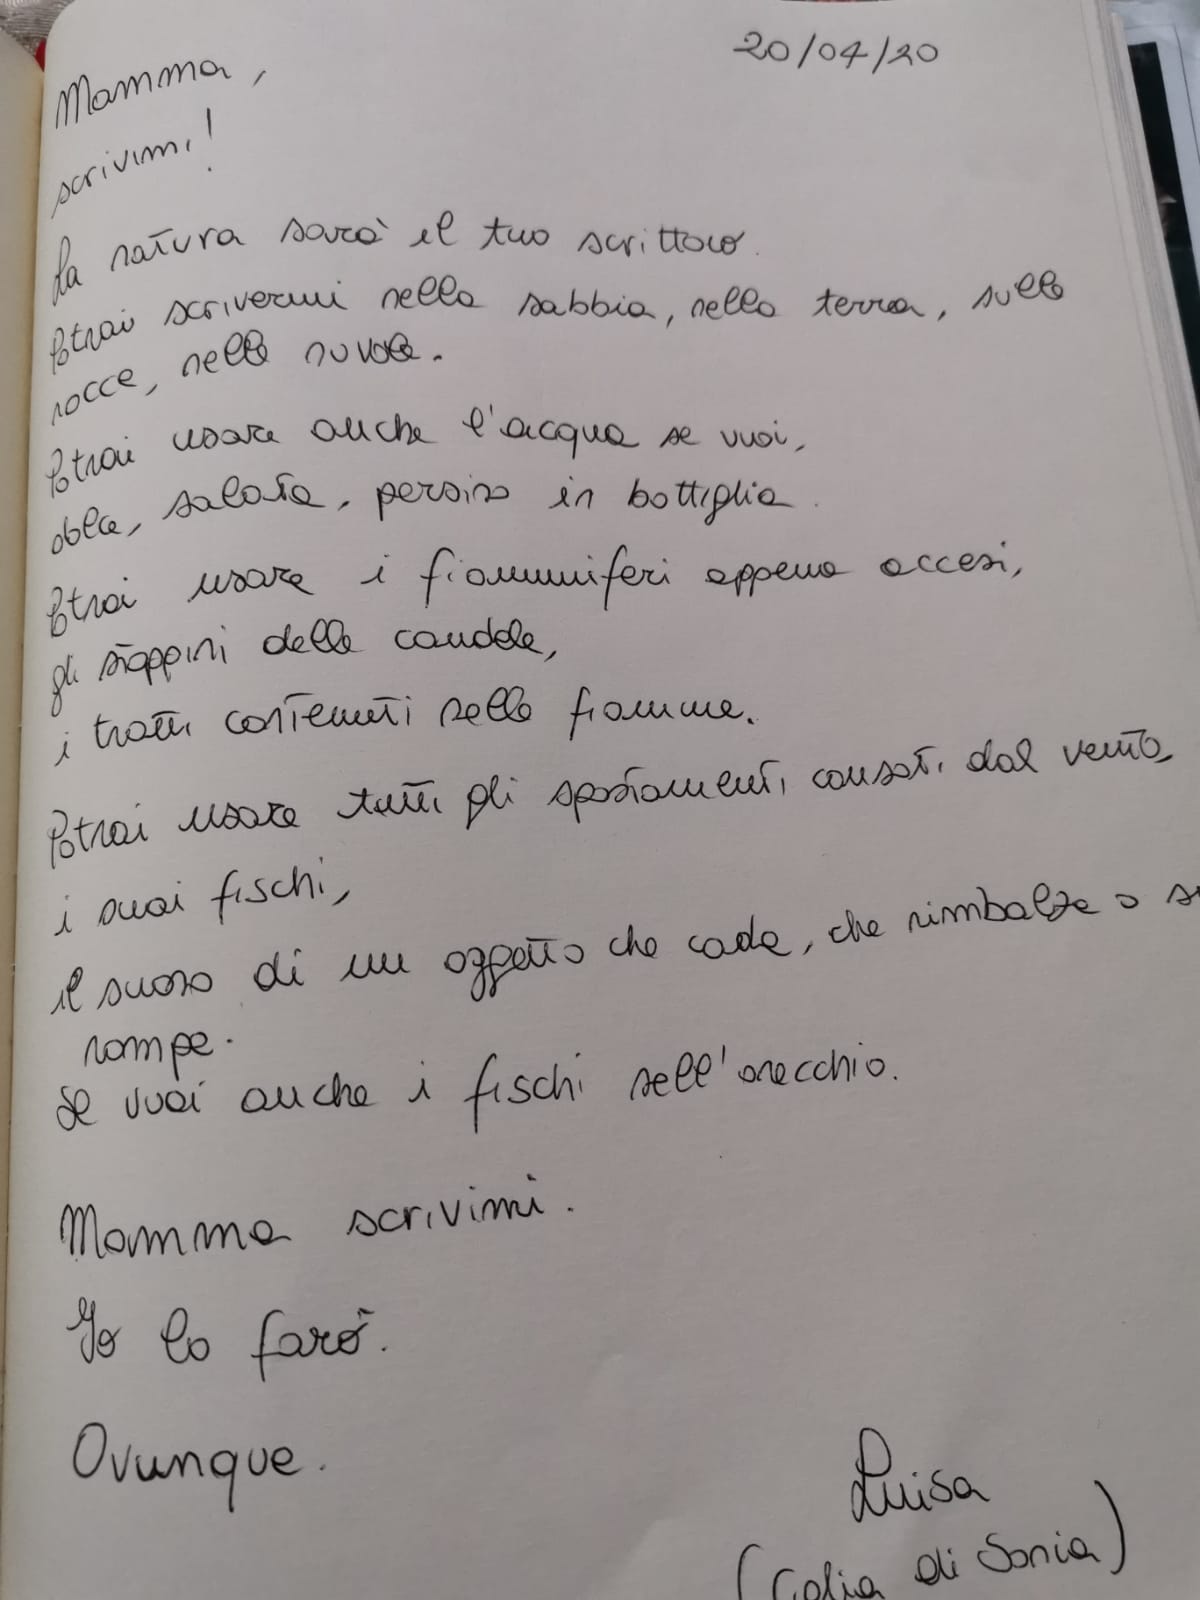 20/04/20
Mamma,
scrivimi!
La natura sarà il tuo scrittoio.
Potrai scrivermi nella sabbia, nella terra, sulle
rocce, nelle nuvole.
Potrai usare anche l'acqua se vuoi,
dolce, salata, persino in bottiglia.
Potrai usare i fiammiferi appena accesi,
gli stoppini delle candele,
i tratti contenuti nelle fiamme.
Potrai usare tutti gli spostamenti causati dal vento,
i suoi fischi,
il suono di un oggetto che cade, che rimbalza o si
rompe.
Se vuoi anche i fischi nell'orecchio.
Mamma scrivimi.
Io lo farò.
Ovunque.
Luisa
(figlia di Sonia)